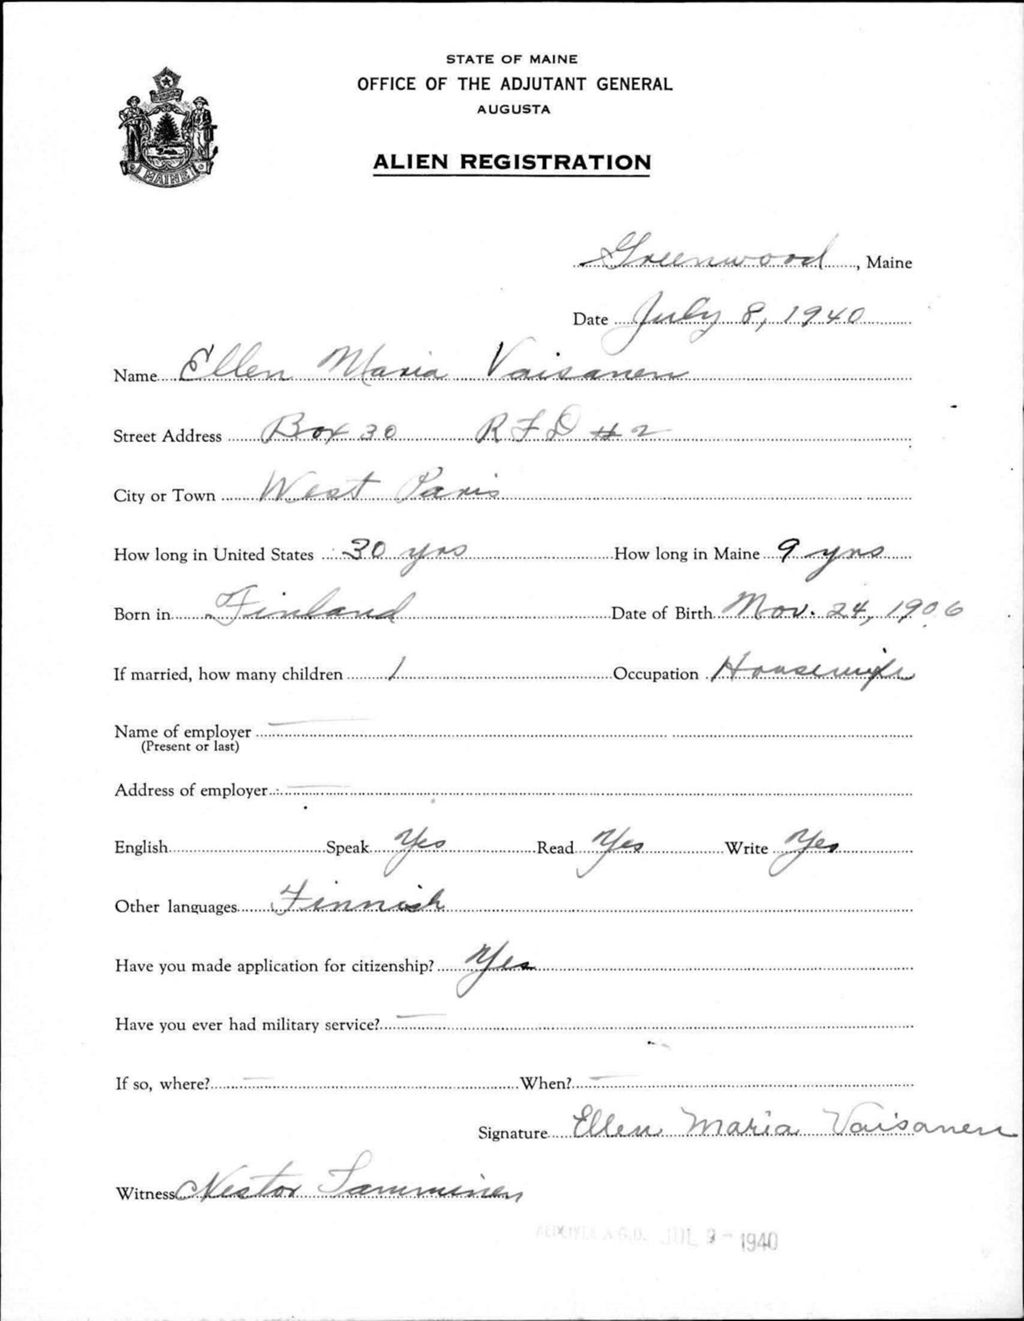 STATE OF MAINE
OFFICE OF THE ADJUTANT GENERAL
AUGUSTA
ALIEN REGISTRATION
MAINE
Greenwood, Maine
Date July 8, 1940
Name Ellen Maria Vaisanen
Street Address Box 30 RFD #2
City or Town West Paris
How long in United States 30 yrs How long in Maine 9 yrs
Born in Finland Date of Birth Nov. 24, 1906
If married, how many children 1 Occupation Housewife
Name of employer —
(Present or last)
Address of employer —
English Speak Yes Read Yes Write Yes
Other languages Finnish
Have you made application for citizenship? Yes
Have you ever had military service? —
If so, where? — When? —
Signature Ellen Maria Vaisanen
Witness Nestor Tamminen
A.G.O. JUL 9 - 1940